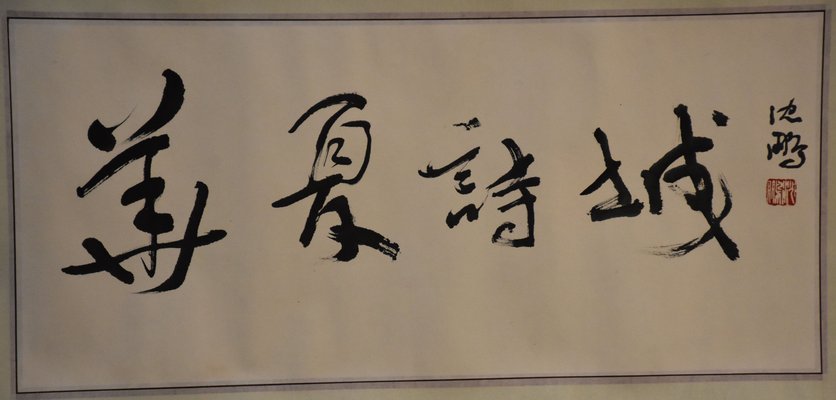 華夏詩城
沈鵬